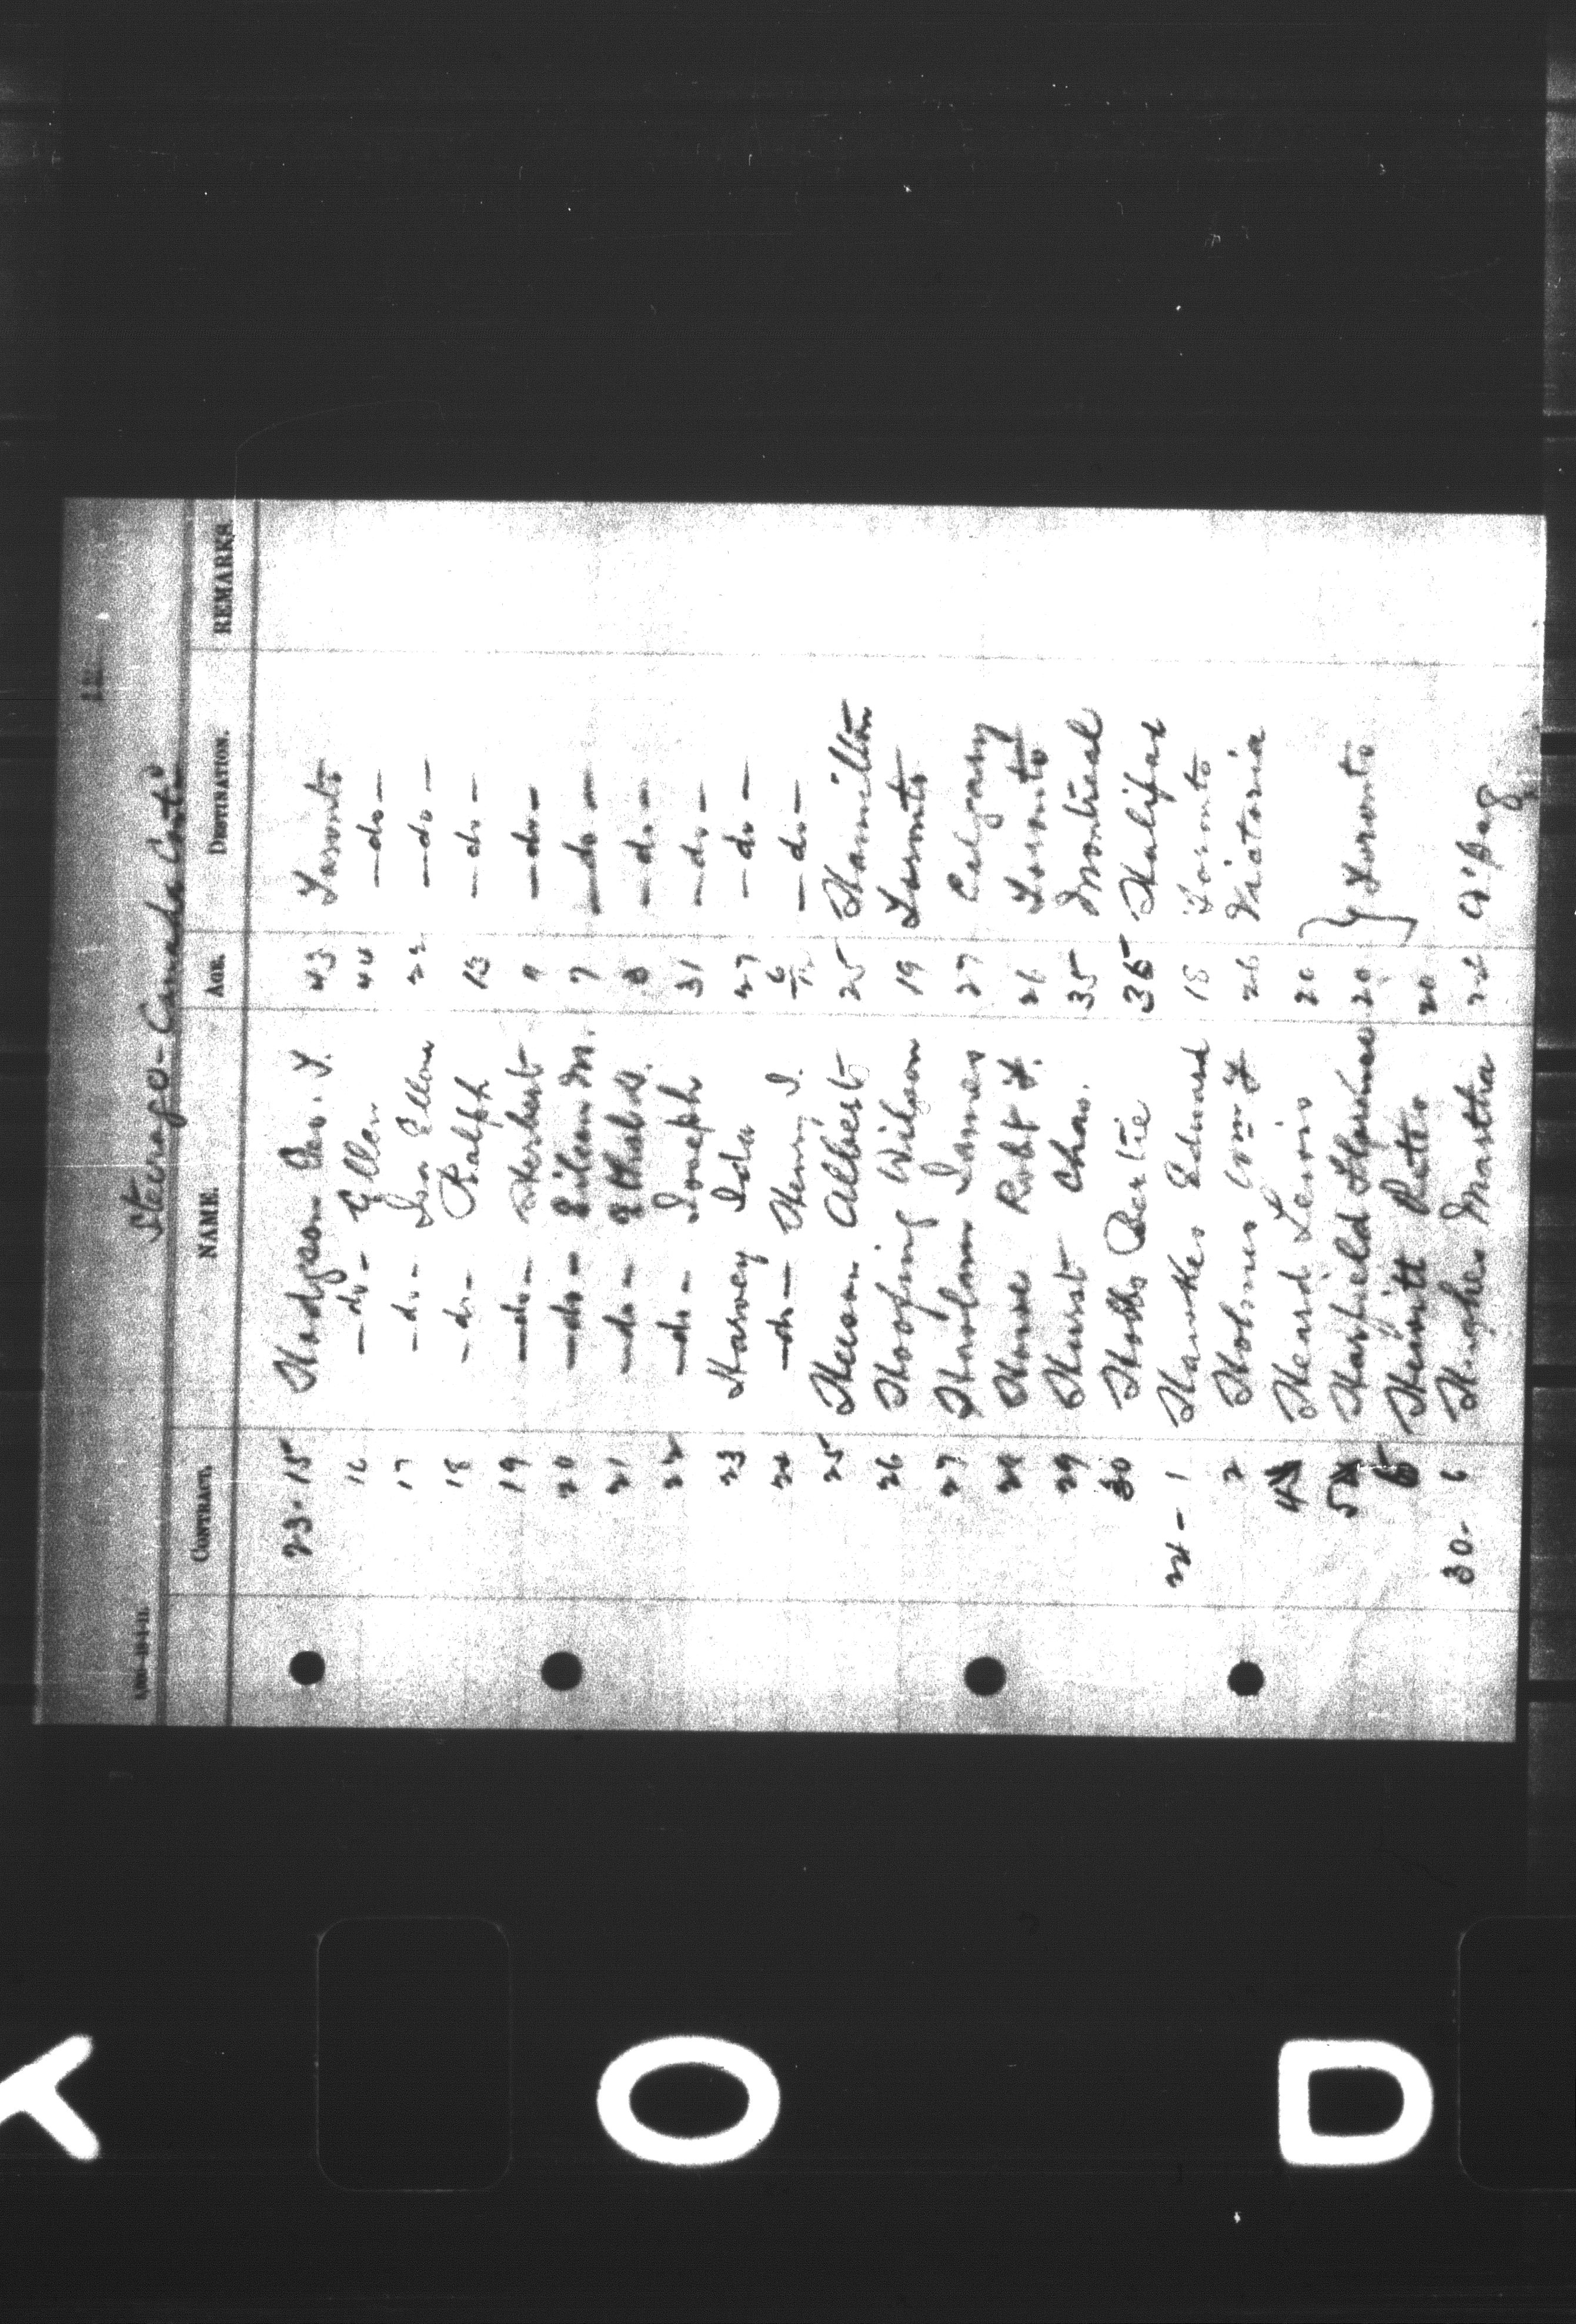 Steerage - Canada Contd
CONTRACT. NAME. AGE. DESTINATION. REMARKS
23-15 Hodgson Geo. T. 43 Toronto
16 -do- Ellen 44 -do-
17 -do- Ellen 22 -do-
18 -do- Ralph 13 -do-
19 -do- Herbert 9 -do-
20 -do- M. 7 -do-
21 -do- 8 -do-
22 -do- Joseph 31 -do-
23 Harvey Ida 27 -do-
24 -do- Henry I. -do-
25 Albert 25 Hamilton
26 Wilson 19 Toronto
27 James 27 Calgary
28 Howe Robt F. 26 Toronto
29 Hurst Chas. 35 Montreal
30 Hobbs Bertie 36 Halifax
24-1 Hawkes Edward 18 Toronto
2 Holmes Wm F 26 Victoria
4 Heard Lewis 20
5 Harfield 20 } Toronto
6 Hewitt 20
30-6 Hughes Martha 22 W'peg
K O D